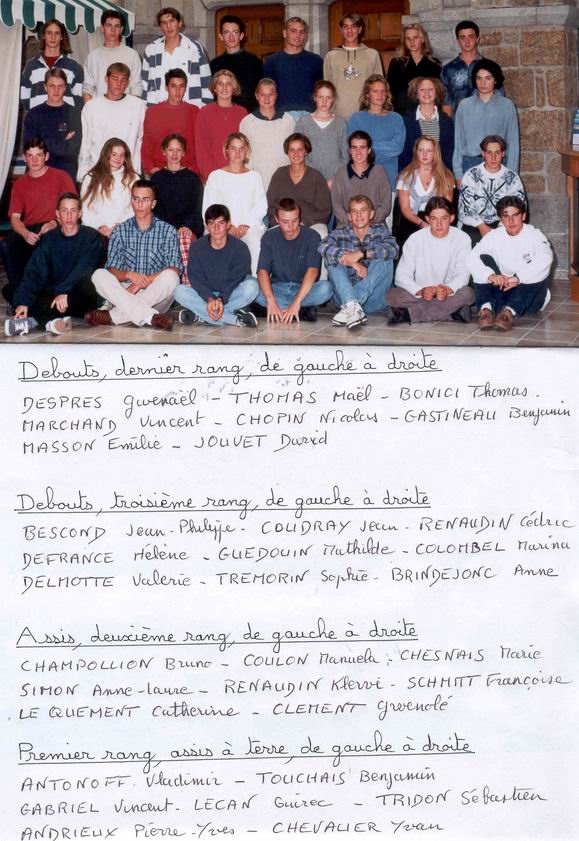 Debouts, dernier rang, de gauche à droite
DESPRES Gwenaël - THOMAS Maël - BONICI Thomas.
MARCHAND Vincent - CHOPIN Nicolas - GASTINEAU Benjamin
MASSON Emilie - JOUVET David
Debouts, troisième rang, de gauche à droite
BESCOND Jean-Philippe - COUDRAY Jean - RENAUDIN Cédric
DEFRANCE Hélène - GUEDOUIN Mathilde - COLOMBEL Marina
DELMOTTE Valérie - TREMORIN Sophie - BRINDEJONC Anne
Assis, deuxième rang, de gauche à droite
CHAMPOLLION Bruno - COULON Manuela - CHESNAIS Marie
SIMON Anne-Laure - RENAUDIN Klervi - SCHMITT Françoise
LE QUEMENT Catherine - CLEMENT Gwenolé
Premier rang, assis à terre, de gauche à droite
ANTONOFF Vladimir - TOUCHAIS Benjamin
GABRIEL Vincent - LECAN Guirec - TRIDON Sébastien
ANDRIEUX Pierre-Yves - CHEVALIER Yvan